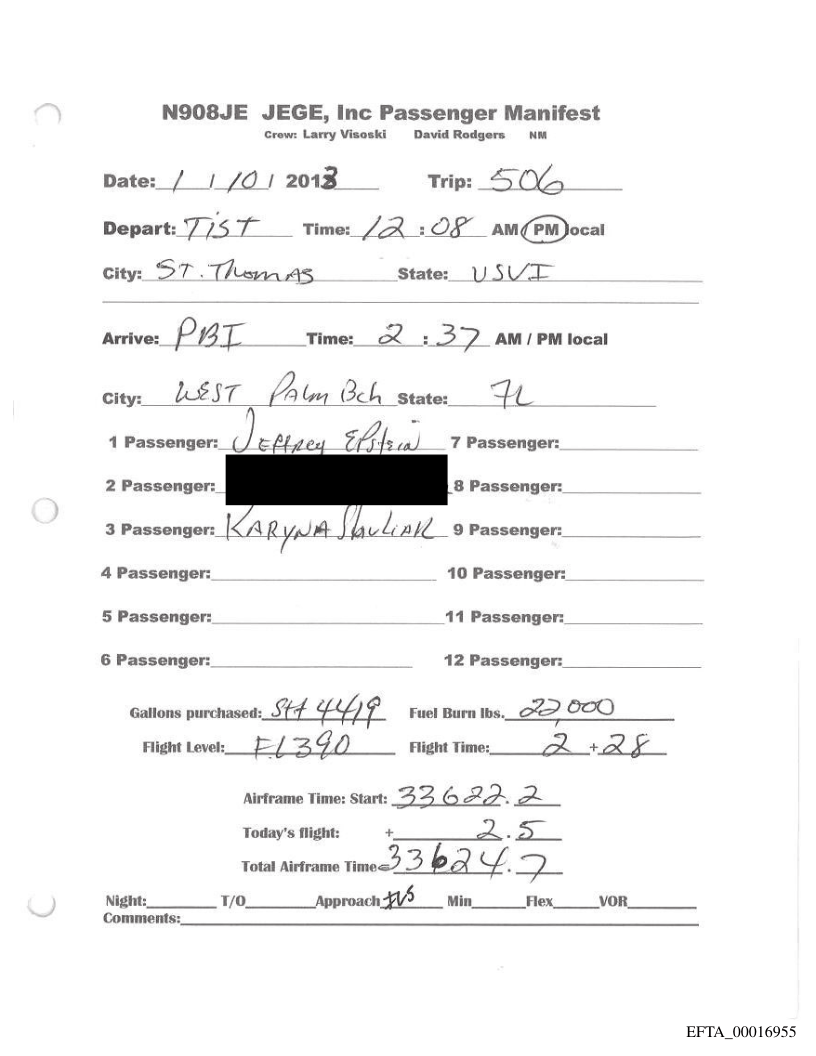 N908JE JEGE, Inc Passenger Manifest
Crew: Larry Visoski David Rodgers NM
Date: 1 / 1 /01 2013 Trip: 506
Depart: TiST Time: 12 : 08 AM / PM local
City: ST. Thomas State: USVI
Arrive: PBI Time: 2 : 37 AM / PM local
City: WEST Palm Bch State: FL
1 Passenger: Jeffrey Epstein 7 Passenger:
2 Passenger: 8 Passenger:
3 Passenger: KARYNA Shuliak 9 Passenger:
4 Passenger: 10 Passenger:
5 Passenger: 11 Passenger:
6 Passenger: 12 Passenger:
Gallons purchased: 4419 Fuel Burn lbs. 22,000
Flight Level: FL390 Flight Time: 2 + 28
Airframe Time: Start: 33622.2
Today's flight: + 2.5
Total Airframe Time= 33624.7
Night: T/O Approach Min Flex VOR
Comments:
EFTA_00016955